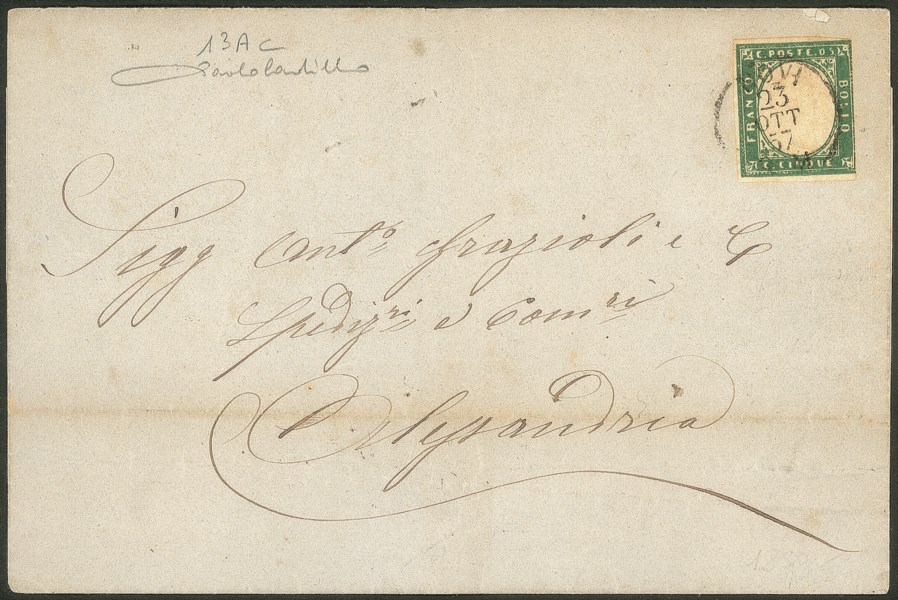 13A c
C. POSTE. 05
FRANCO
BOLLO
C. CINQUE
23
OTT
57
Sigg Ant.º Frazioli e C
Spediz.ri e Com.ri
Alessandria